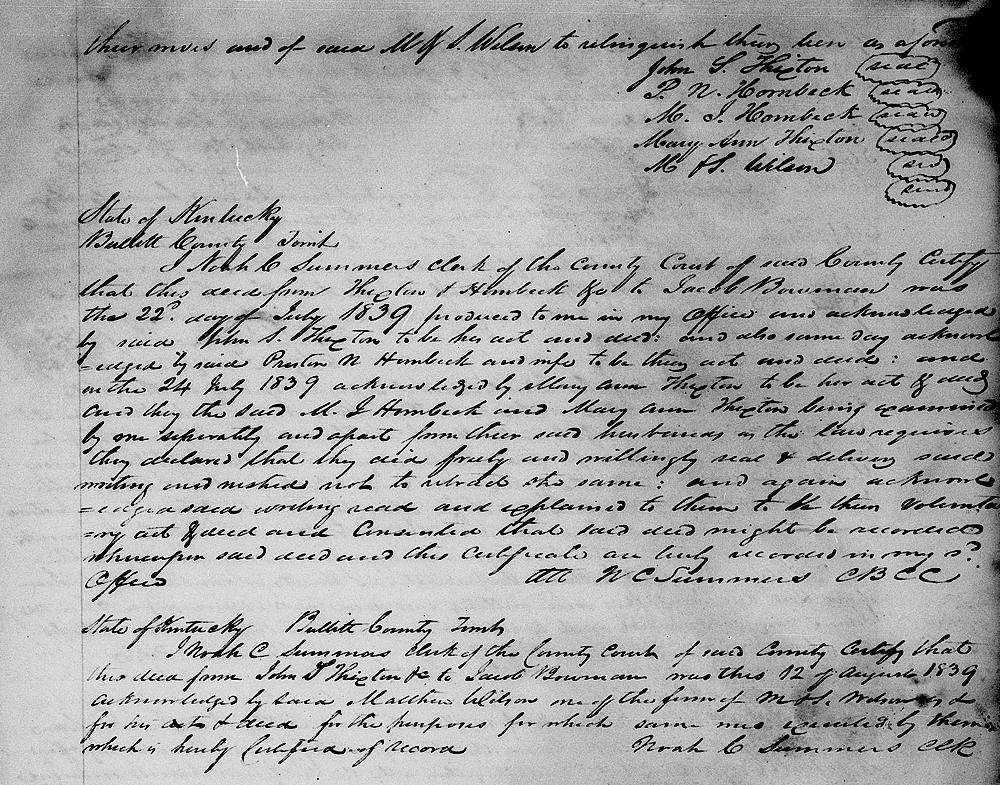 their wives and of said M & S. Wilson to relinquish their lien as afore
John S. Thixton (seal)
P. N. Hornbeck (seal)
M. J. Hornbeck (seal)
Mary Ann Thixton (seal)
M & S. Wilson (seal)
(seal)
State of Kentucky
Bullitt County Towit
I Noah C Summers clerk of the County Court of said County Certify
that this deed from Thixton & Hornbeck &c to Jacob Bowman was
the 22d day of July 1839 produced to me in my office and acknowledged
by said John S. Thixton to be his act and deed: and also same day acknowl
=edged by said Preston N Hornbeck and wife to be their act and deed: and
on the 24 July 1839 acknowledged by Mary Ann Thixton to be her act & deed
and they the said M. J Hornbeck and Mary Ann Thixton being examined
by me seperatly and apart from their said husbands as the law requires
they declared that they did freely and willingly seal & deliver said
writing and wished not to retract the same: and again acknowl
=edged said writing read and explained to them to be their volunta
=ry act & deed and Consented that said deed might be recorded
whereupon said deed and this certificate are truly recorded in my sd.
Office Att N C Summers C B C C
State of Kentucky Bullitt County Towit
I Noah C. Summers clerk of the County Court of said County Certify that
this deed from John S Thixton &c to Jacob Bowman was this 12 of August 1839
acknowledged by said Matthew Wilson one of the firm of M & S. Wilson as &
for his act & deed for the purposes for which same was executed by them
which is hereby Certified of record Noah C Summers Clk